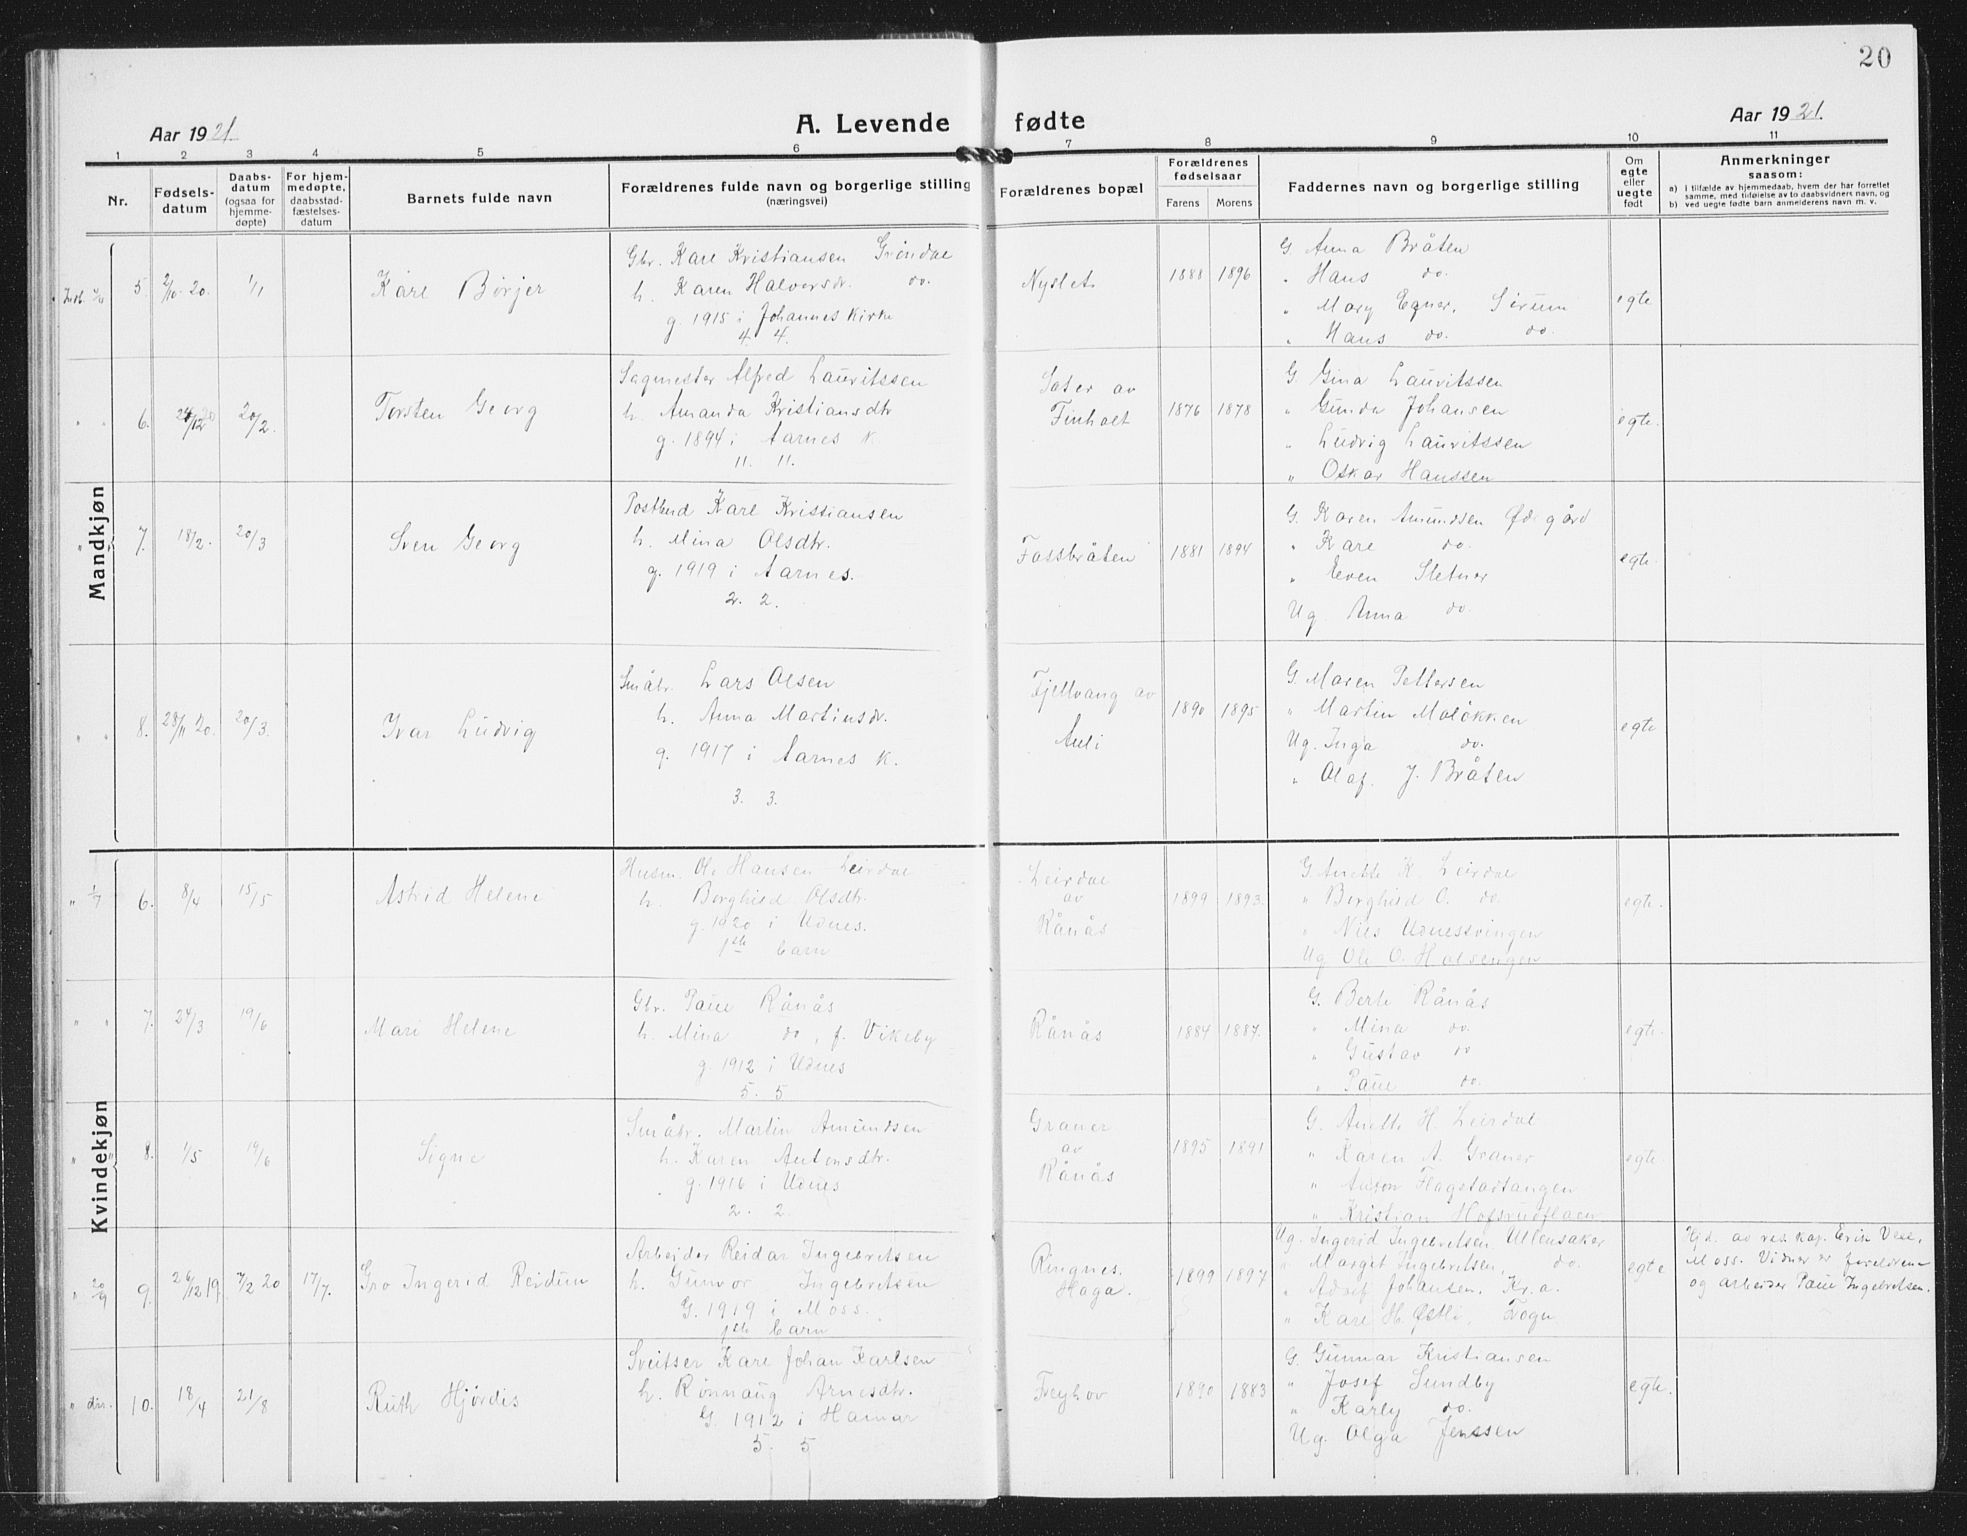 20
Aar 1921.
A. Levende fødte
Aar 1921.
1 2 3 4 5 6 7 8 9 10 11
Nr.
Fødsels-
datum
Daabs-
datum
(ogsaa for
hjemme-
døpte)
For hjem-
medøpte,
daabsstad-
fæstelses-
datum
Barnets fulde navn
Forældrenes fulde navn og borgerlige stilling
(næringsvei)
Forældrenes bopæl
Forældrenes
fødselsaar
Farens Morens
Faddernes navn og borgerlige stilling
Om
egte
eller
uegte
født
Anmerkninger
saasom:
a) i tilfælde av hjemmedaab, hvem der har forrettet
samme, med tilføielse av to daabsvidners navn, og
b) ved uegte fødte barn anmelderens navn m. v.
Mandkjøn
5. 2/10 20. 1/1
Kåre Børjer
Gbr. Kare Kristiansen Grøndal
h. Karen Halvorsdr. do.
g. 1915 i Johannes kirke
4. 4.
Nyslet
1888 1896
G. Anna Bråten
" Hans do.
" Mary Egner, Sørum
" Hans do. do.
egte
6. 24/12 20 20/2.
Torsten Georg
Sagmester Alfred Lauritssen
h. Amanda Kristiansdtr
g. 1894 i Aarnes K
11. 11.
Sæter av
Finholt
1876 1878
G. Gina Lauritssen
" Gunda Johansen
" Ludvig Lauritssen
" Oskar Hanssen
egte.
7. 18/2. 20/3
Sven Georg
Postbud Kare Kristiansen
h. Mina Olsdtr.
g. 1919 i Aarnes.
2. 2.
Fossbråten
1881 1894
G. Karen Amundsen Ødegård
" Kare do.
" Even Sletner
Ug. Anna do.
egte.
8. 28/11 20. 20/3.
Ivar Ludvig
Småbr. Lars Olsen
h. Anna Martinsdr.
g. 1917 i Aarnes K.
3. 3.
Fjellvang av
Auli
1890 1895
G. Maren Pettersen
" Martin Moløkken
Ug. Inga do.
" Olaf J. Bråten
egte
Kvindekjøn
" 1/7 6. 8/4 15/5
Astrid Helene
Husm. Ole Hansen Leirdal
h. Borghild Olsdtr.
g. 1920 i Udnes.
1ste barn
Leirdal
av
Rånås
1899 1893.
G. Anette K. Leirdal
" Borghild O. do.
" Nils Udnessvingen
Ug. Ole O. Halsengen
egte.
" " 7. 24/3 19/6
Mari Helene
Gbr. Paul Rånås
h. Mina do, f. Vikeby
g. 1912 i Udnes
5. 5
Rånås
1884 1887.
G. Berte Rånås
" Mina do.
" Gustav do
" Paul do.
egte.
" " 8. 1/5 19/6
Signe
Småbr. Martin Amundsen
h. Karen Antonsdtr.
g. 1916 i Udnes
2. 2.
Graner
av
Rånås
1895 1891
G. Anette H. Leirdal
" Karen A. Graner
" Anton Flagstadtangen
" Kristian Hofsrudflaen
egte.
" 20/9 9. 26/12 19. 7/2 20 17/7.
Gro Ingerid Reidun
Arbeider Reidar Ingebretsen
h. Gunvor Ingebretsen
G. 1919 i Moss.
1ste barn
Ringnes.
Haga.
1899 1897
Ug. Ingerid Ingebretsen, Ullensaker
" Margit Ingebretsen, do.
" Adolf Johansen, Kr.a.
" Kare H. Østli, Fogn
egte
Hjd. av res. kap. Erik Vese,
Moss. Vidner er foreldrene
og arbeider Paul Ingebretsen.
" do. 10. 18/4 21/8
Ruth Hjørdis
Sveitser Kare Johan Karlsen
h. Rønnaug Arnesdtr.
G. 1912 i Hamar
5. 5
Freyhov
1890 1883
G. Gunnar Kristiansen
" Josef Sundby
" Karly do.
Ug. Olga Jenssen
egte.